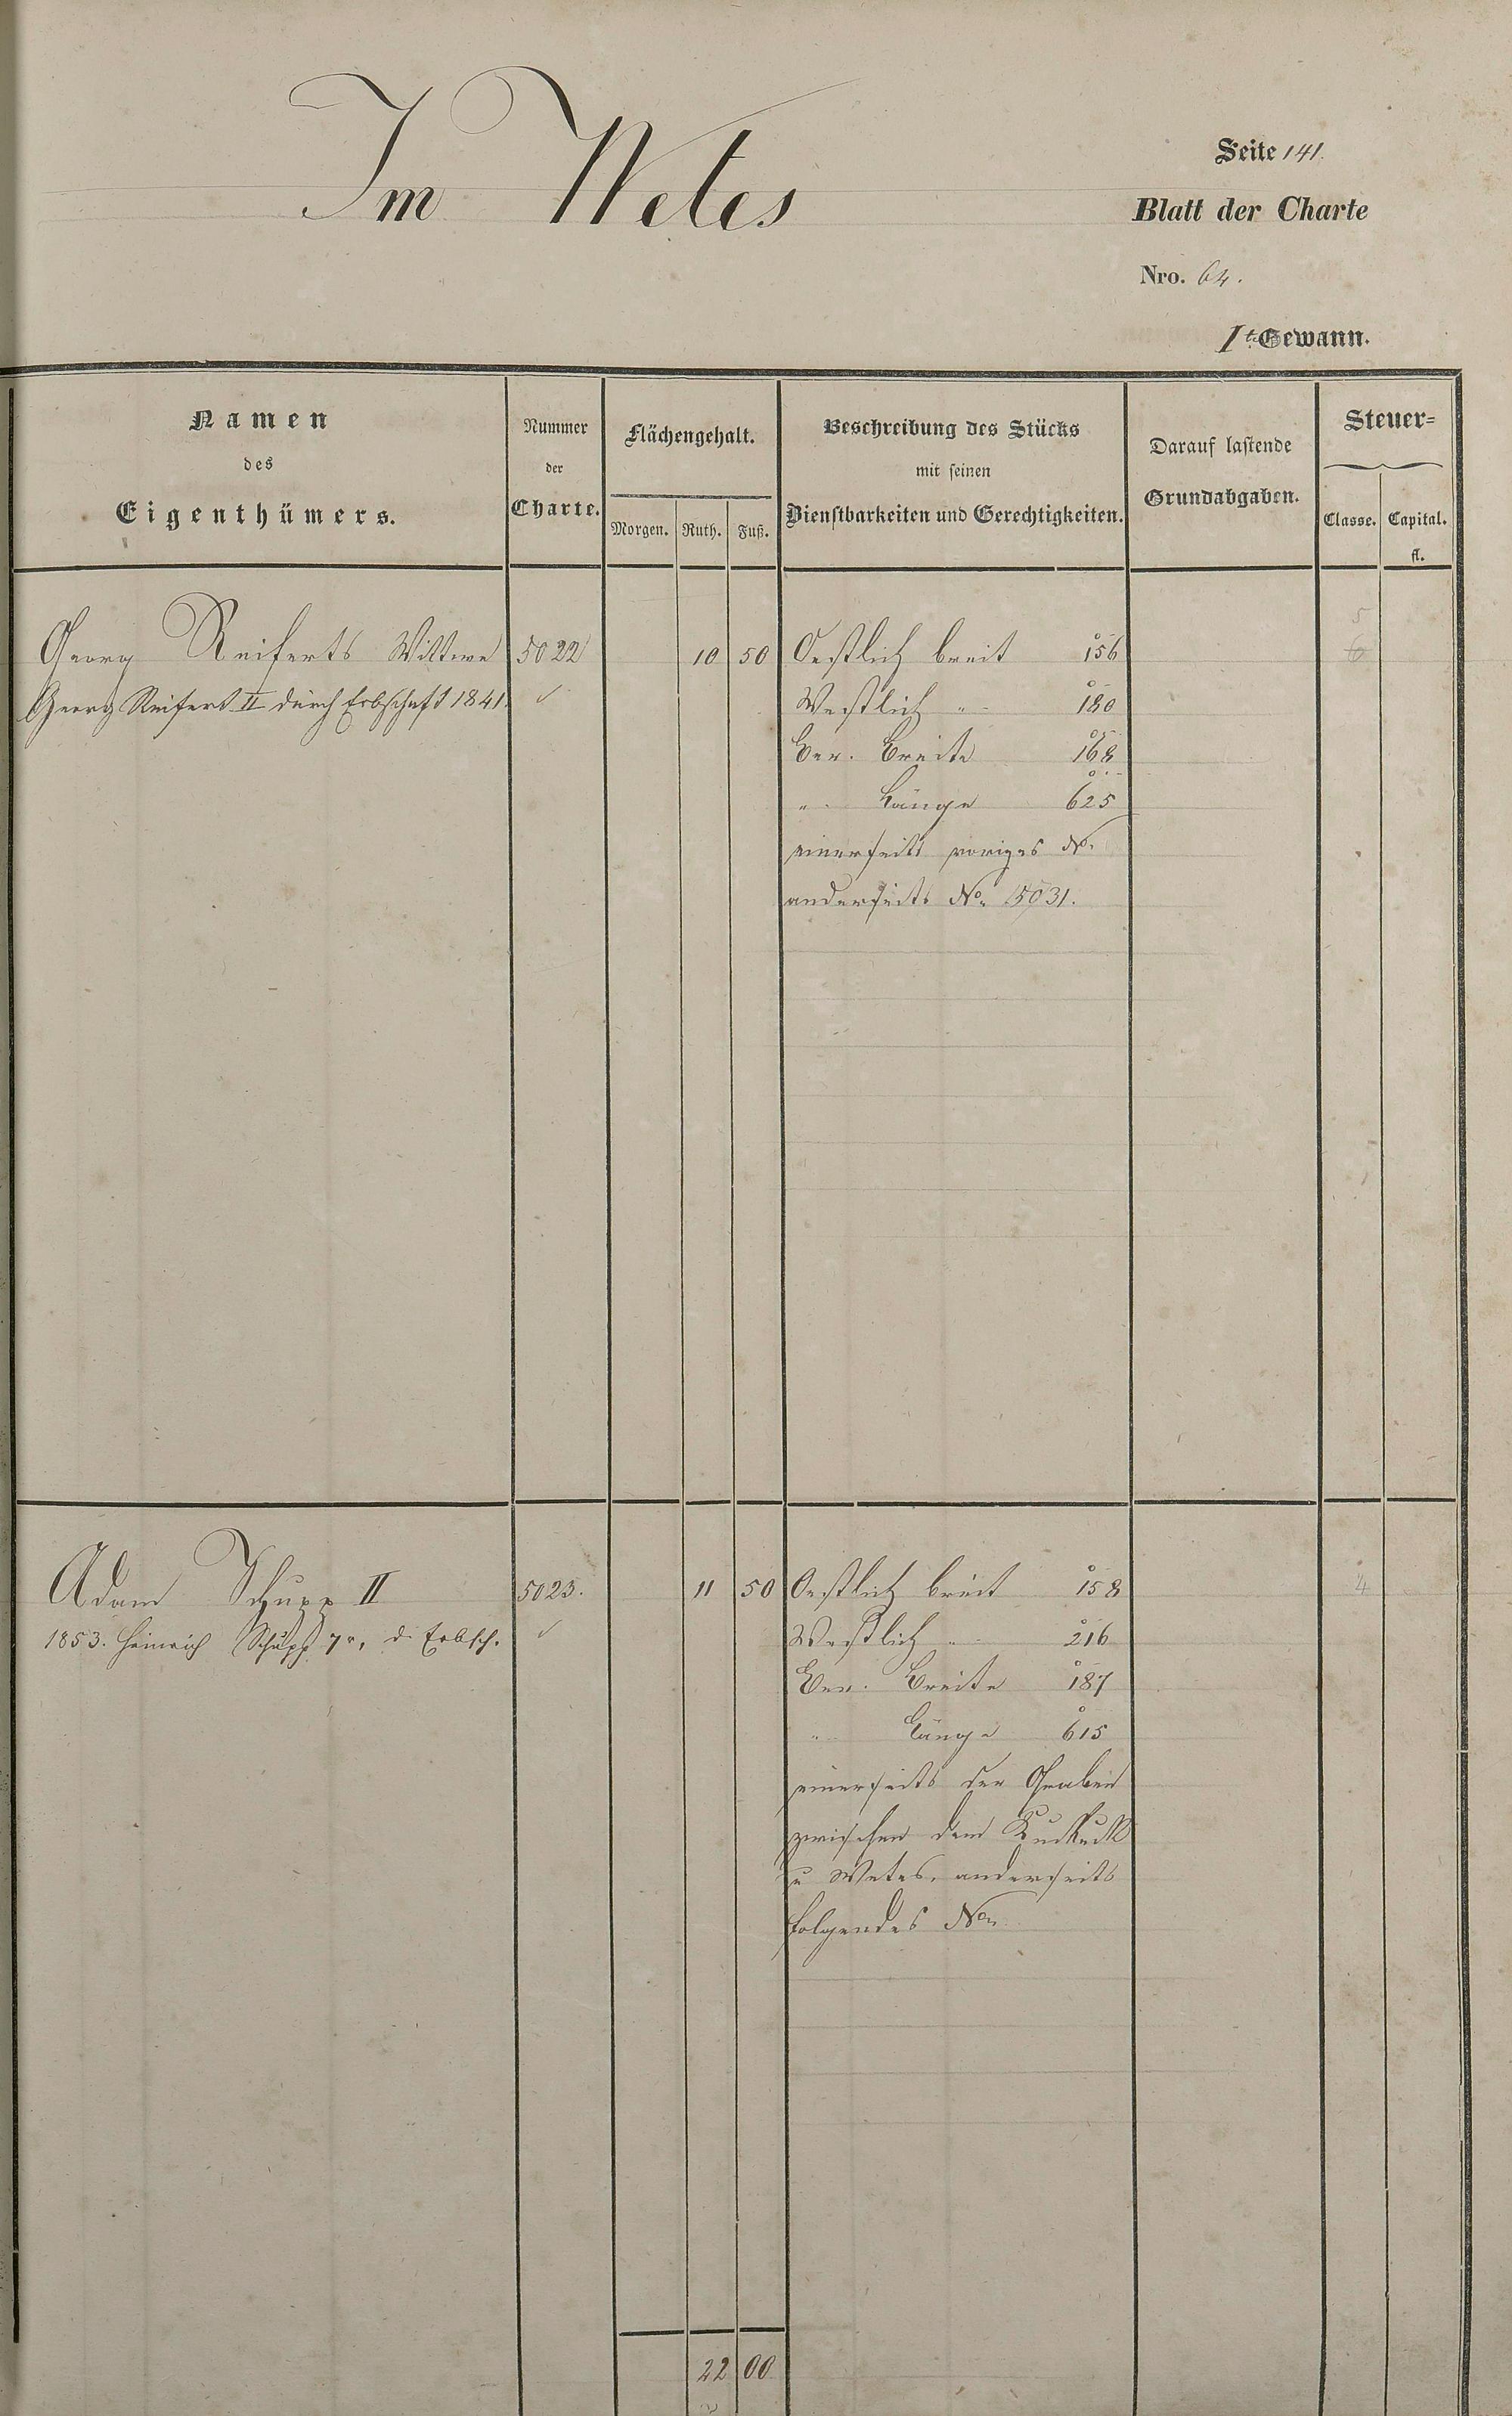 Im Wetes
Seite 141.
Blatt der Charte
Nro. 64.
I te Gewann.
Namen
des
Eigenthümers.
Nummer
der
Charte.
Flächengehalt.
Morgen. Ruth. Fuß.
Beschreibung des Stücks
mit seinen
Dienstbarkeiten und Gerechtigkeiten.
Darauf lastende
Grundabgaben.
Steuer=
Classe. Capital.
fl.
5
Georg Reiferts Wittwe 5022 10 50 Oestlich breit 156 6
Georg Reifert II durch Erbschaft 1841. ✓ Westlich " 180
Ver. Breite 168
" Länge 625
einerseits voriges No.
anderseits No. 5031.
Adam Schupp II 5023. 11 50 Oestlich breit 158 4
1853. Heinrich Schupp 7r, d. Erbsch. ✓ Westlich " 216
Ver. Breite 187
" Länge 615
einerseits der Graben
zwischen dem Kuckuck
u Wetes, anderseits
folgendes No.
22 00